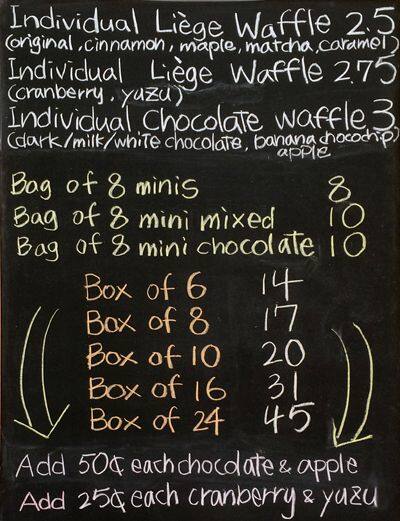 Individual Liège Waffle 2.5
(original, cinnamon, maple, matcha, caramel)
Individual Liège Waffle 2.75
(cranberry, yuzu)
Individual Chocolate Waffle 3
(dark/milk/white chocolate, banana chocochip)
apple
Bag of 8 minis 8
Bag of 8 mini mixed 10
Bag of 8 mini chocolate 10
Box of 6 14
Box of 8 17
Box of 10 20
Box of 16 31
Box of 24 45
Add 50¢ each chocolate & apple
Add 25¢ each cranberry & yuzu